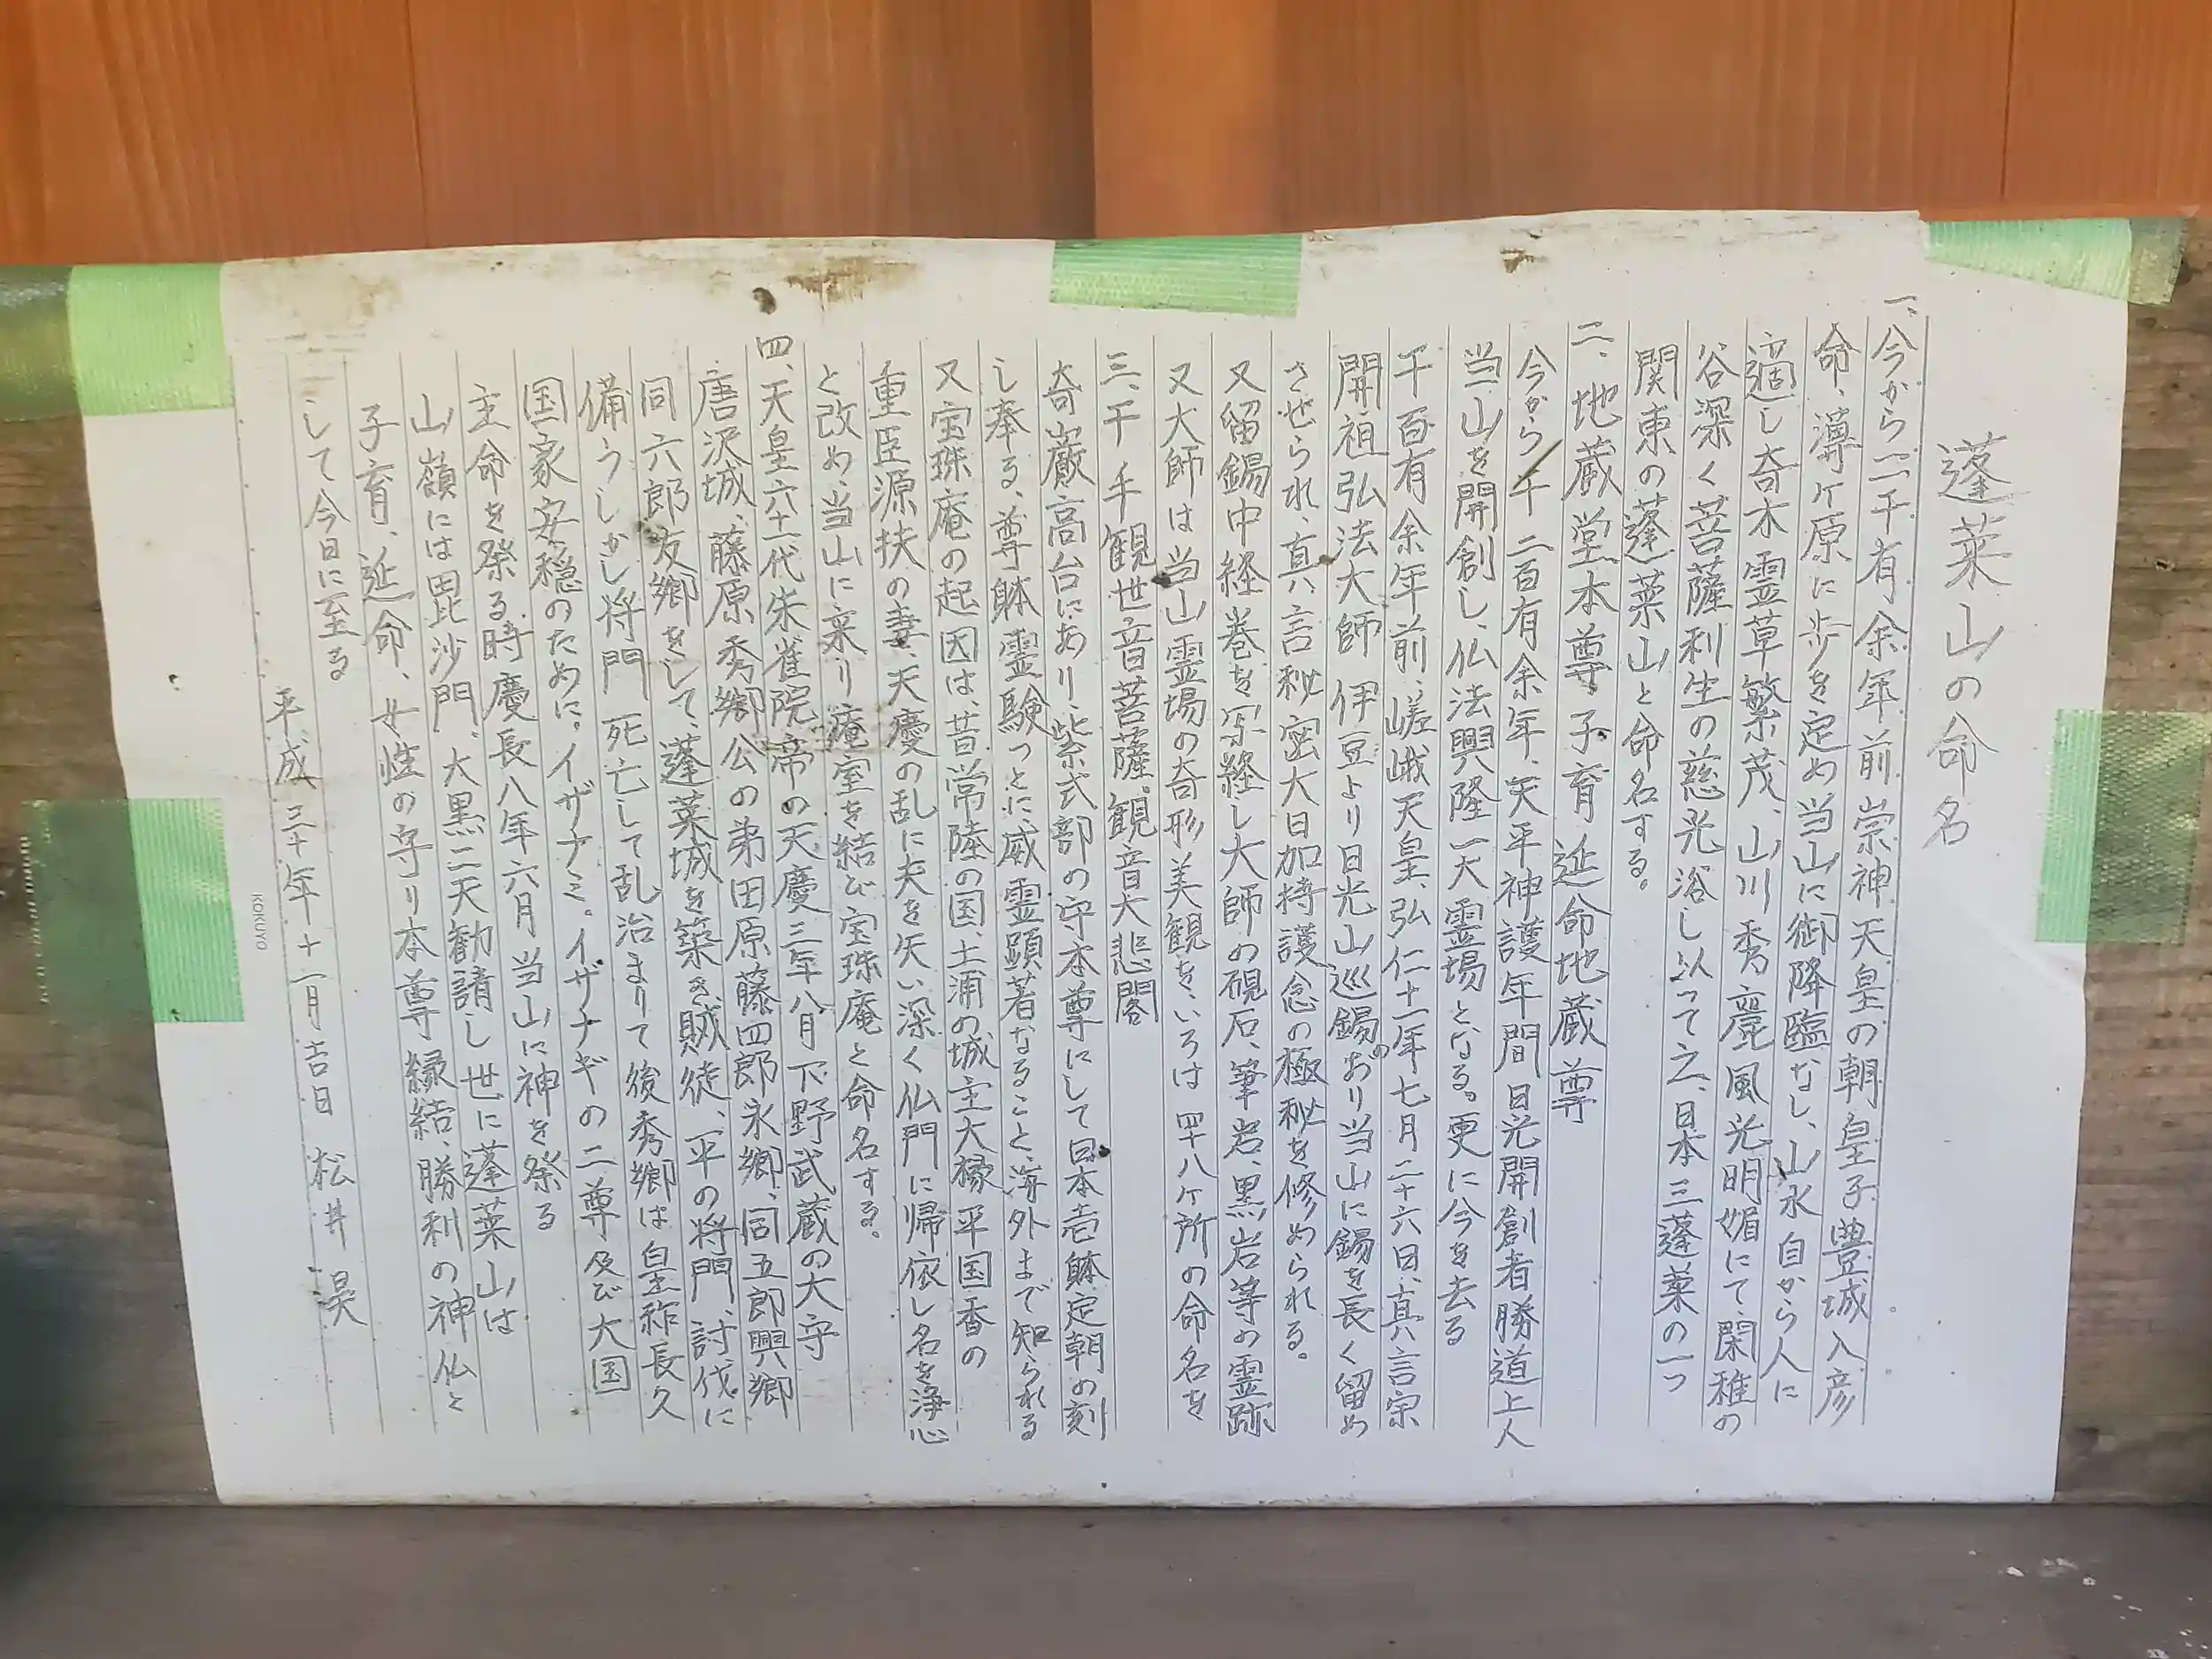 蓬莱山の命名
一、今から二千有余年前崇神天皇の朝皇子豊城入彦
命、薄ヶ原に歩を定め当山に御降臨なし、山水自から人に
適し奇木霊草繁茂、山川秀麗風光明媚にて、閑雅の
谷深く菩薩利生の慈光浴し以って之、日本三蓬莱の一つ
関東の蓬莱山と命名する。
二、地蔵堂本尊子育延命地蔵尊
今から千二百有余年、天平神護年間日光開創者勝道上人
当山を開創し、仏法興隆一大霊場となる。更に今を去る
千百有余年前、嵯峨天皇、弘仁十一年七月二十六日、真言宗
開祖弘法大師伊豆より日光山巡錫のおり当山に錫を長く留め
させられ、真言秘密大日加持護念の極秘を修められる。
又留錫中経巻を写経し大師の硯石、筆岩、黒岩等の霊跡
又大師は当山霊場の奇形美観を、いろは四十八ヶ所の命名を
三、千手観世音菩薩、観音大悲閣
奇巌高台にあり、紫式部の守本尊にして日本壱躰定朝の刻
し奉る、尊躰霊験つとに、威霊顕著なること、海外まで知られる
又宝珠庵の起因は、昔常陸の国、土浦の城主大椽平国香の
重臣源扶の妻、天慶の乱に夫を失い深く仏門に帰依し名を浄心
と改め、当山に来り庵室を結び宝珠庵と命名する。
四、天皇六十一代朱雀院帝の天慶三年八月下野武蔵の大守
唐沢城、藤原秀郷公の弟田原藤四郎永郷、同五郎興郷
同六郎友郷をして、蓬莱城を築き、賊徒、平の将門、討伐に
備うしかし将門死亡して乱治まりて後秀郷は皇祚長久
国家安穏のために。イザナミ。イザナギの二尊及び大国
主命を祭る時慶長八年六月当山に神を祭る
山嶺には毘沙門、大黒二天勧請し世に蓬莱山は
子育、延命、女性の守り本尊縁結、勝利の神仏と
して今日に至る
平成三十年十一月吉日 松井 昊
KOKUYO